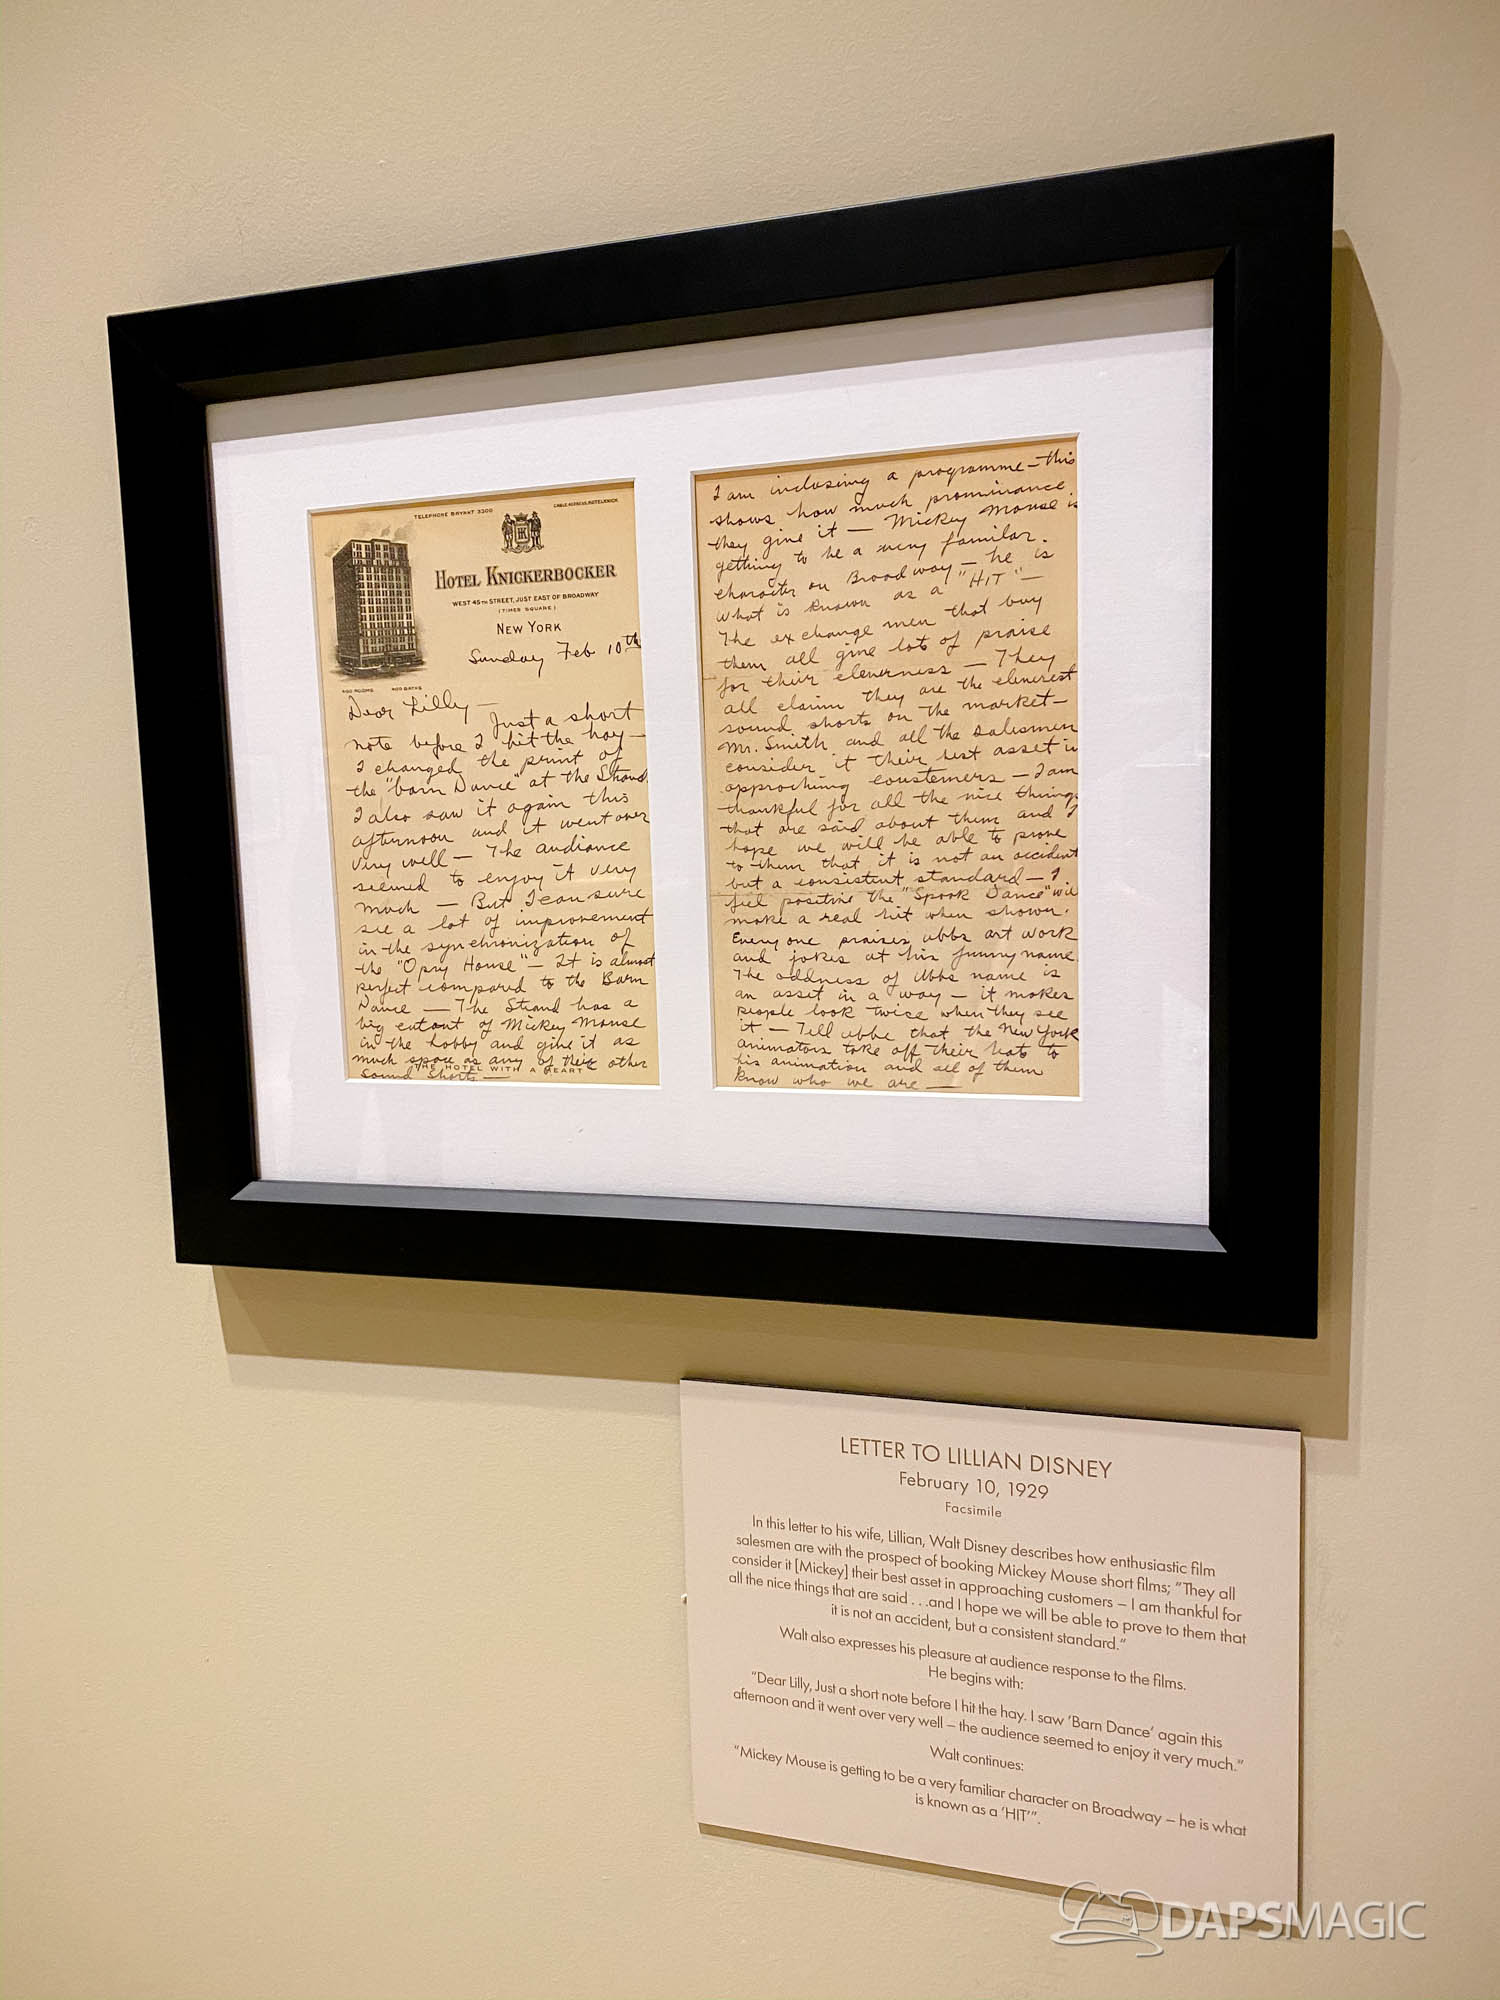 TELEPHONE BRYANT 3300
HOTEL KNICKERBOCKER
WEST 45TH STREET, JUST EAST OF BROADWAY
(TIMES SQUARE)
NEW YORK
Sunday Feb 10th
400 ROOMS 400 BATHS
Dear Lilly —
Just a short
note before I hit the hay —
I changed the print of
the "barn Dance" at the Strand.
I also saw it again this
afternoon and it went over
very well — The audiance
seemed to enjoy it very
much — But I can sure
see a lot of improvement
in the synchronization of
the "Opry House" — It is almost
perfect compared to the Barn
Dance — The Strand has a
big cutout of Mickey Mouse
in the lobby and give it as
much space as any of their other
THE HOTEL WITH A HEART
sound shorts —
I am inclosing a programme — this
shows how much prominance
they give it — Mickey Mouse is
getting to be a very familar
character on Broadway — he is
what is known as a "HIT" —
The exchange men that buy
them all give lots of praise
for their cleverness — They
all claim they are the cleverest
sound shorts on the market —
Mr. Smith and all the salesmen
consider it their best asset in
approching coustemers — I am
thankful for all the nice things
that are said about them and I
hope we will be able to prove
to them that it is not an accident
but a consistent standard — I
feel positive the "Spook Dance" will
make a real hit when shown.
Everyone praises ubbs art work
and jokes at his funny name.
The oddness of Ubbs name is
an asset in a way — it makes
people look twice when they see
it — Tell ubbe that the New York
animators take off their hats to
his animation and all of them
know who we are —
LETTER TO LILLIAN DISNEY
February 10, 1929
Facsimile
In this letter to his wife, Lillian, Walt Disney describes how enthusiastic film
salesmen are with the prospect of booking Mickey Mouse short films; "They all
consider it [Mickey] their best asset in approaching customers – I am thankful for
all the nice things that are said . . .and I hope we will be able to prove to them that
it is not an accident, but a consistent standard."
Walt also expresses his pleasure at audience response to the films.
He begins with:
"Dear Lilly, Just a short note before I hit the hay. I saw 'Barn Dance' again this
afternoon and it went over very well – the audience seemed to enjoy it very much."
Walt continues:
"Mickey Mouse is getting to be a very familiar character on Broadway – he is what
is known as a 'HIT'".
DAPSMAGIC